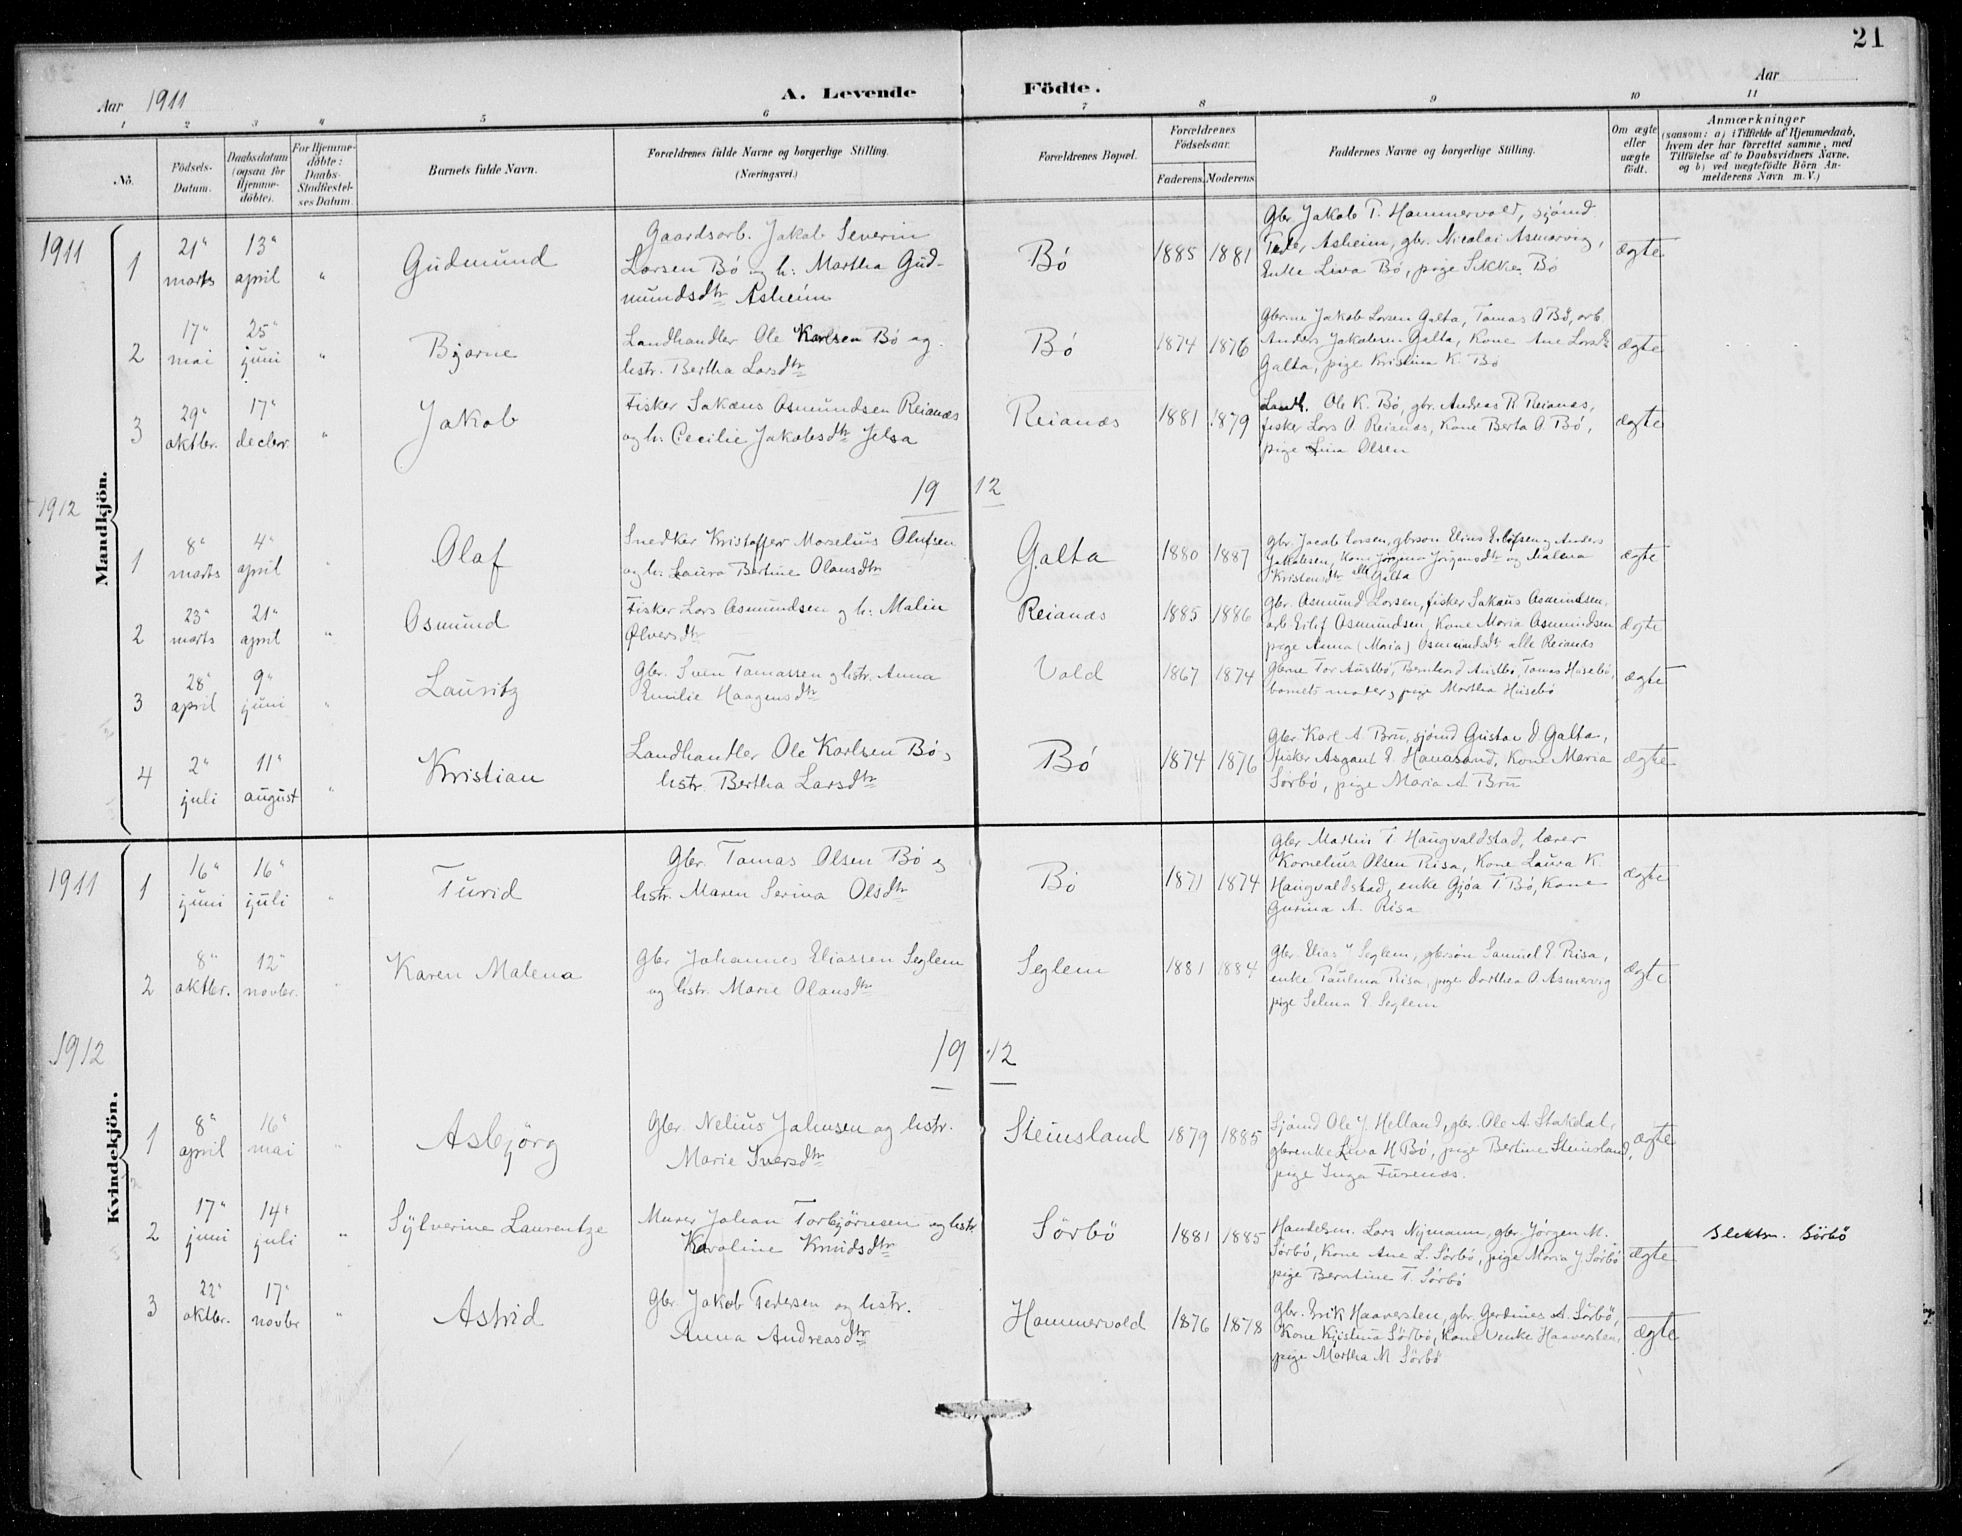 21
Aar 1911
A. Levende Födte.
Aar
1 2 3 4 5 6 7 8 9 10 11
No.
Födsels-Datum.
Daabsdatum (ogsaa for Hjemme-döbte).
For Hjemme-döbte: Daabs-Stadfæstel-ses Datum.
Barnets fulde Navn.
Forældrenes fulde Navne og borgerlige Stilling.
(Næringsvei.)
Forældrenes Bopæl.
Forældrenes Födselsaar.
Faderens. Moderens.
Faddernes Navne og borgerlige Stilling.
Om ægte eller uægte födt.
Anmærkninger
(saasom: a) i Tilfælde af Hjemmedaab,
hvem der har forrettet samme, med
Tilföielse af to Daabsvidners Navne,
og b) ved uægtefödte Börn An-
melderens Navn m. V.)
Mandkjön.
1911
1
21" marts
13" april
"
Gudmund
Gaardsarb. Jakob Severin
Larsen Bö og h: Martha Gud-
mundsdtr Asheim
Bö
1885 1881
Gbr Jakob T. Hammervold, sjömd
Asheim, gbr. Nicolai Asmarvig,
Enke Liva Bö, pige Sikke Bö
ægte
2
17" mai
25" juni
"
Bjarne
Landhandler Ole Karlsen Bö og
hstr. Bertha Larsdtr
Bö
1874 1876
Gbrne Jakob Larsen Galta, Tomas O Bö, arb.
Anders Jakobsen Galta, Kone Ane Larsdtr
Galta, pige Kristina K. Bö
ægte
3
29" oktbr.
17" decbr
"
Jakob
Fisker Sakæus Osmundsen Reianæs
og h: Cecilie Jakobsdtr Jelsa
Reianæs
1881 1879
Landh. Ole K. Bö, gbr. Andreas R. Reianæs,
fisker Lars O. Reianæs, Kone Berta O Bö,
pige Lina Olsen
ægte
19 12
1912
1
8" marts
4" april
Olaf
Snedker Kristoffer Morselius Olufsen
og h: Laura Bertine Olausdtr
Galta
1880 1887
Gbr. Jacob Larsen, gbrsön Elius Eilefsen og Anders
Jakobsen, Kone Jörgine Jörgensdtr og Malena
Kristensdtr alle Galta
ægte
2
23" marts
21" april
"
Osmund
Fisker Lars Osmundsen og h: Malin
Ølversdtr
Reianæs
1885 1886
Gbr. Osmund Larsen, fisker Sakæus Osmundsen,
arb. Eilif Osmundsen, Kone Maria Osmundsen
pige Anna (Maria) Osmundsdtr alle Reianæs
ægte
3
28" april
9" juni
Lauritz
Gbr. Sven Tomassen og hstr. Anna
Emilie Haagensdtr
Vold
1867 1874
Gbrne Tor Austbö, Bernhard Austbö, Tomas Husebö,
barnets moder, pige Martha Husebö
ægte
4
2" juli
11" august
"
Kristian
Landhandler Ole Karlsen Bö,
hstr. Bertha Larsdtr
Bö
1874 1876
Gbr. Karl A. Bru, sjömd Gustav D Galta,
fisker Asgaut E. Hanasand, Kone Maria
Sörbö, pige Maria A. Bru
ægte
Kvindekjön.
1911
1
16" juni
16" juli
"
Turid
Gbr. Tomas Olsen Bö og
hstr. Maren Serina Olsdtr
Bö
1871 1874
Gbr Martin T. Haugvaldstad, lærer
Kornelius Olsen Risa, Kone Laura K.
Haugvaldstad, enke Gjöa T. Bö, Kone
Gurina A. Risa
ægte
2
8" oktbr.
12" novbr.
"
Karen Malena
Gbr Johannes Eliassen Seglem
og hstr. Marie Olausdtr
Seglem
1881 1884
Gbr. Elias J Seglem, gbrsön Samuel E. Risa,
enke Paulina Risa, pige Dorthea O. Asmervig
pige Selma E. Seglem
ægte
19 12
1912
1
8" april
16" mai
"
Asbjörg
Gbr. Nelius Johnsen og hstr.
Marie Iversdtr
Steinsland
1879 1885
Sjömd Ole J. Helland, gbr. Ole A. Stakdal,
gbrenke Liva H Bö, pige Bertine Steinsland,
pige Inga Furenæs.
ægte
2
17" juni
14" juli
"
Sylverine Laurentze
Murer Johan Torbjörnsen og hstr
Karoline Knudsdtr
Sörbö
1881 1885
Handelsm. Lars Nymann, gbr. Jörgen M.
Sörbö, Kone Ane L. Sörbö, pige Maria J Sörbö
pige Berntine T. Sörbö
ægte
Slektsn. Sörbö
3
22" oktbr.
17" novbr
"
Astrid
Gbr Jakob Pedersen og hstr.
Anna Andreasdtr
Hammervold
1876 1878
Gbr. Erik Haaversten, gbr. Gerdines A. Sörbö,
Kone Kristina Sörbö, Kone Venke Haaversten,
pige Martha M Sörbö
ægte